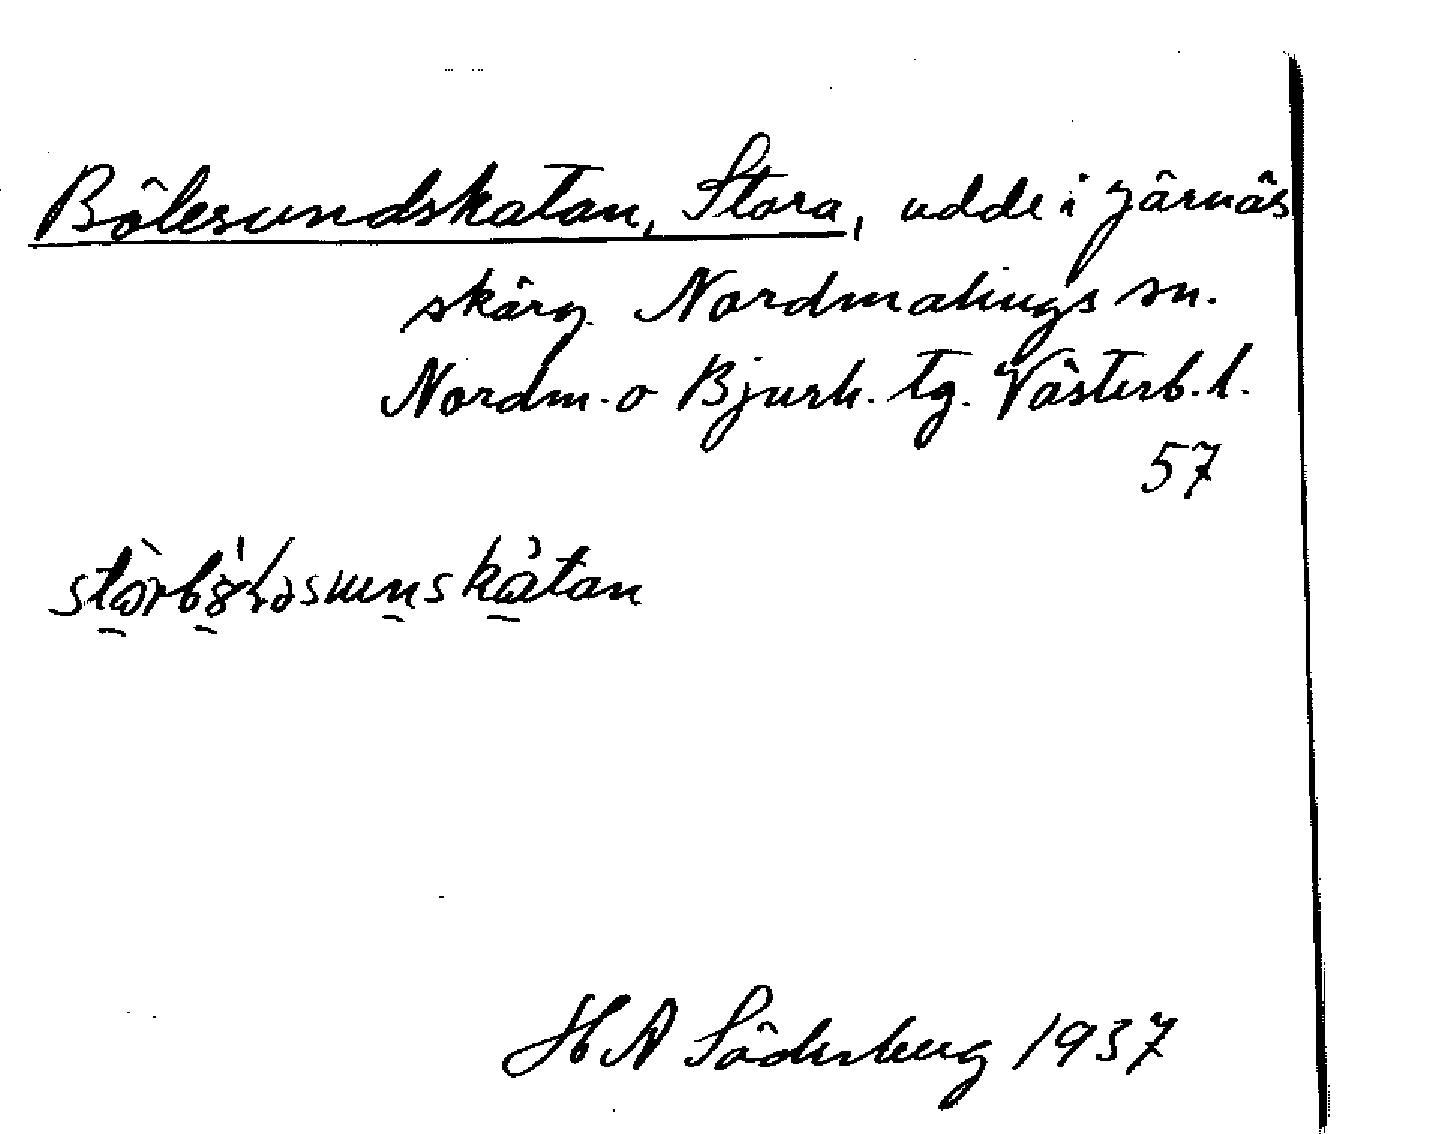 Bölesundskatan, Stora, udde i Järnäs
skärg. Nordmalings sn.
Nordm. o Bjurh. tg. Västerb. l.
57
H A Söderberg 1937